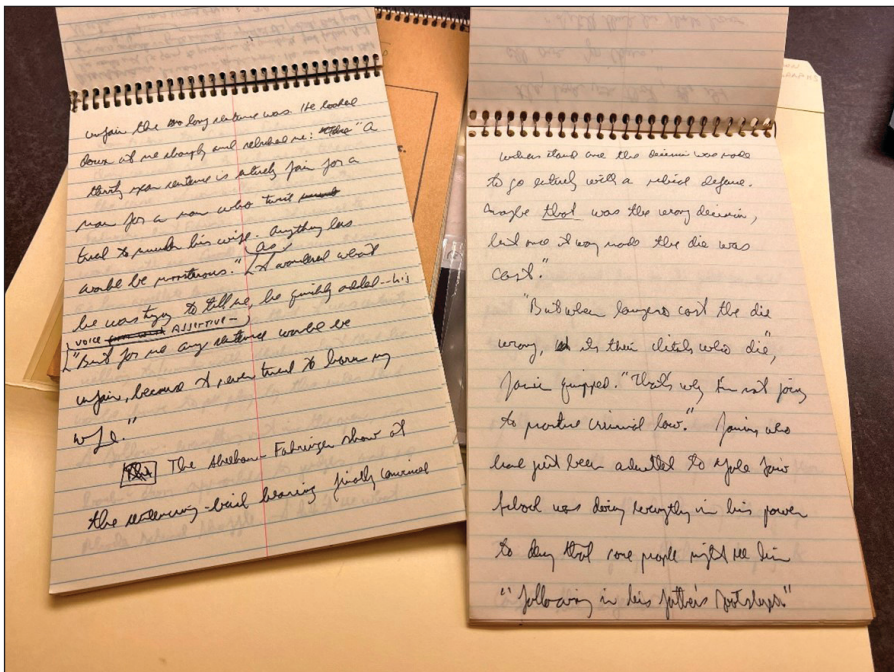 unfair the long sentence was. He looked
down at me sharply and rebuked me: "A
thirty year sentence is entirely fair for a
man for a man who twice
tried to murder his wife. Anything less
would be monstrous." As I wondered what
he was trying to tell me, he quickly added -- his
voice assertive --
"But for me any sentence would be
unfair, because I never tried to harm my
wife."
The Sheehan-Fahringer show at
the sentencing-bail hearing finally convinced
stand and the decision was made
to go entirely with a medical defense.
Maybe that was the wrong decision,
but once it was made the die was
cast."
"But when lawyers cast the die
wrong, it's their clients who die",
Jamin quipped. "That's why I'm not going
to practice criminal law." Jamin who
had just been admitted to Yale Law
School was doing everything in his power
to deny that some people might see him
"following in his father's footsteps"